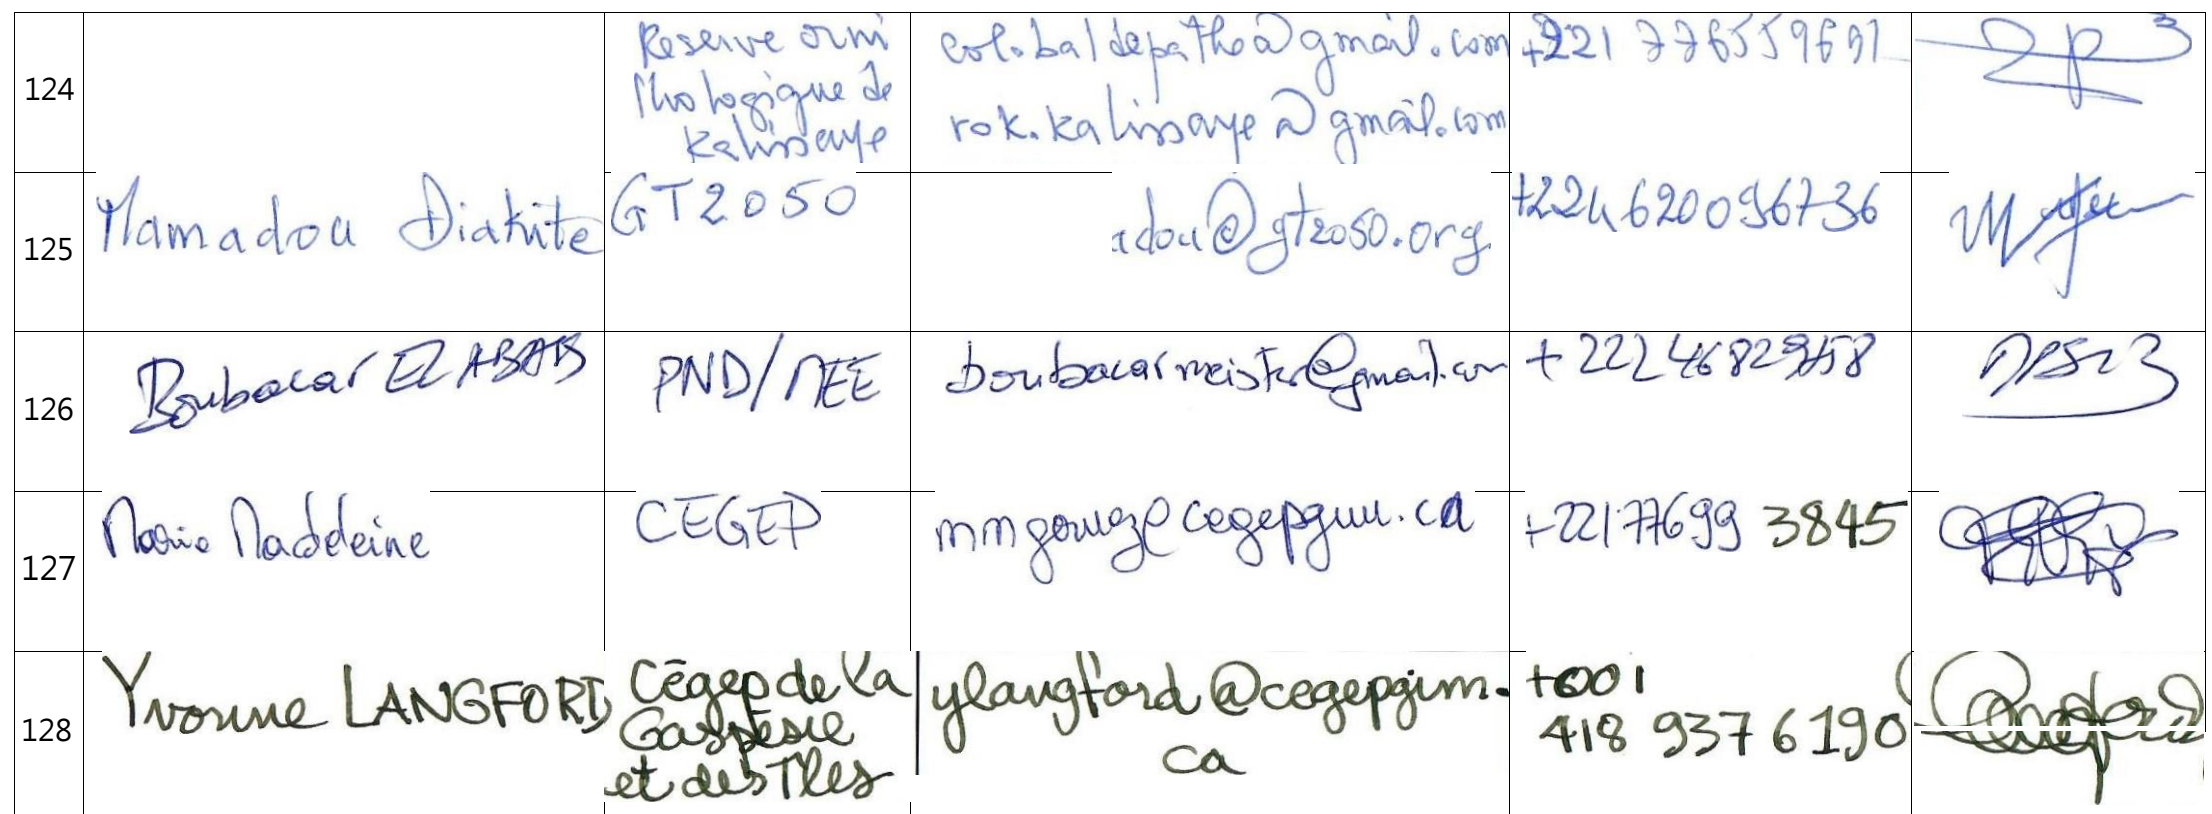 124
Reserve orni
thologique de
Kalissaye
col.baldepatho@gmail.com
rok.kalissaye@gmail.com
+221 776559691
125
Mamadou Diakite
GT2050
adou@gt2050.org
+224 620096736
126
Boubacar EZ ABAB
PND/MEE
boubacarmeister@gmail.com
127
Marie Madeleine
CEGEP
+221 77699 3845
128
Yvonne LANGFORD
Cégep de la
Gaspésie
et des Iles
ylangford@cegepgim.
ca
+001
418 937 6190